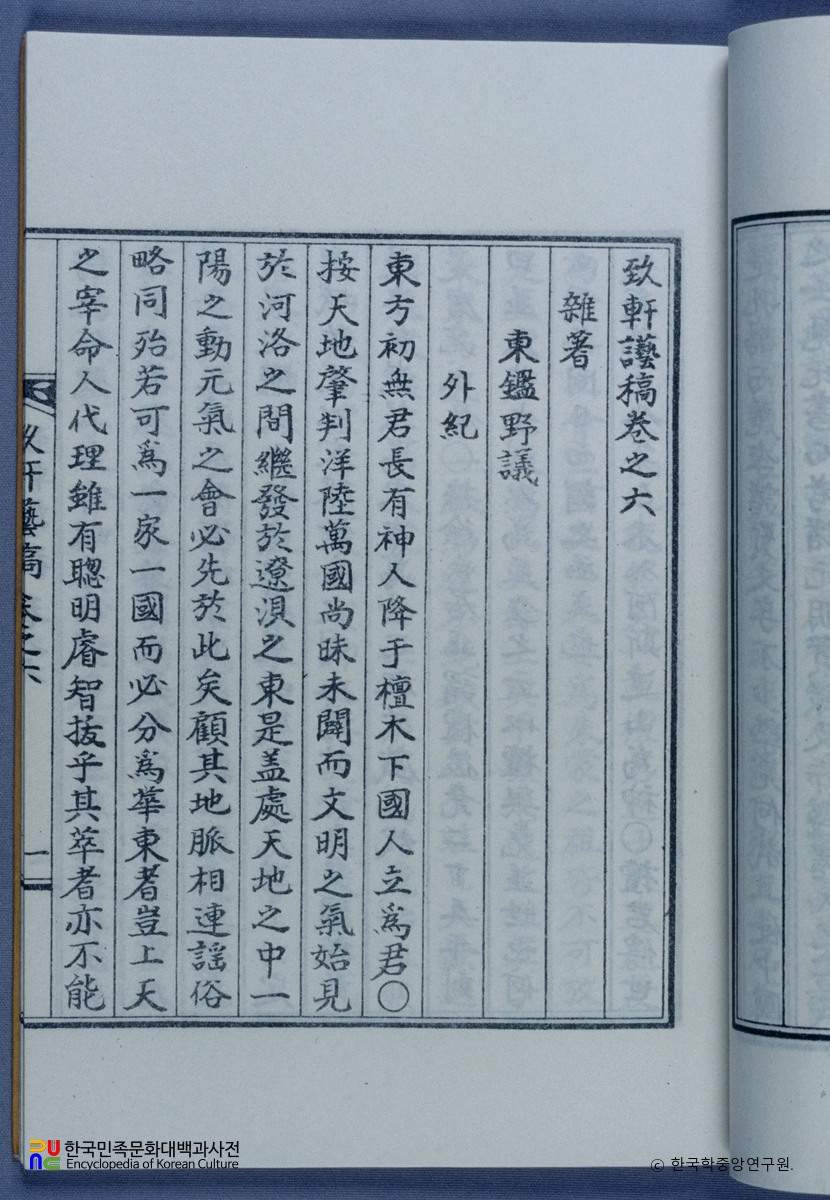 致軒藝稿卷之六
雜著
東鑑野議
外紀
東方初無君長有神人降于檀木下國人立爲君○
按天地肇判洋陸萬國尚昧未闢而文明之氣始見
於河洛之間繼發於遼浿之東是盖處天地之中一
陽之動元氣之會必先於此矣顧其地脈相連謠俗
略同殆若可爲一家一國而必分爲華東者豈上天
之宰命人代理雖有聰明睿智拔乎其萃者亦不能
致軒藝稿 卷之六
一
한국민족문화대백과사전
Encyclopedia of Korean Culture
© 한국학중앙연구원.